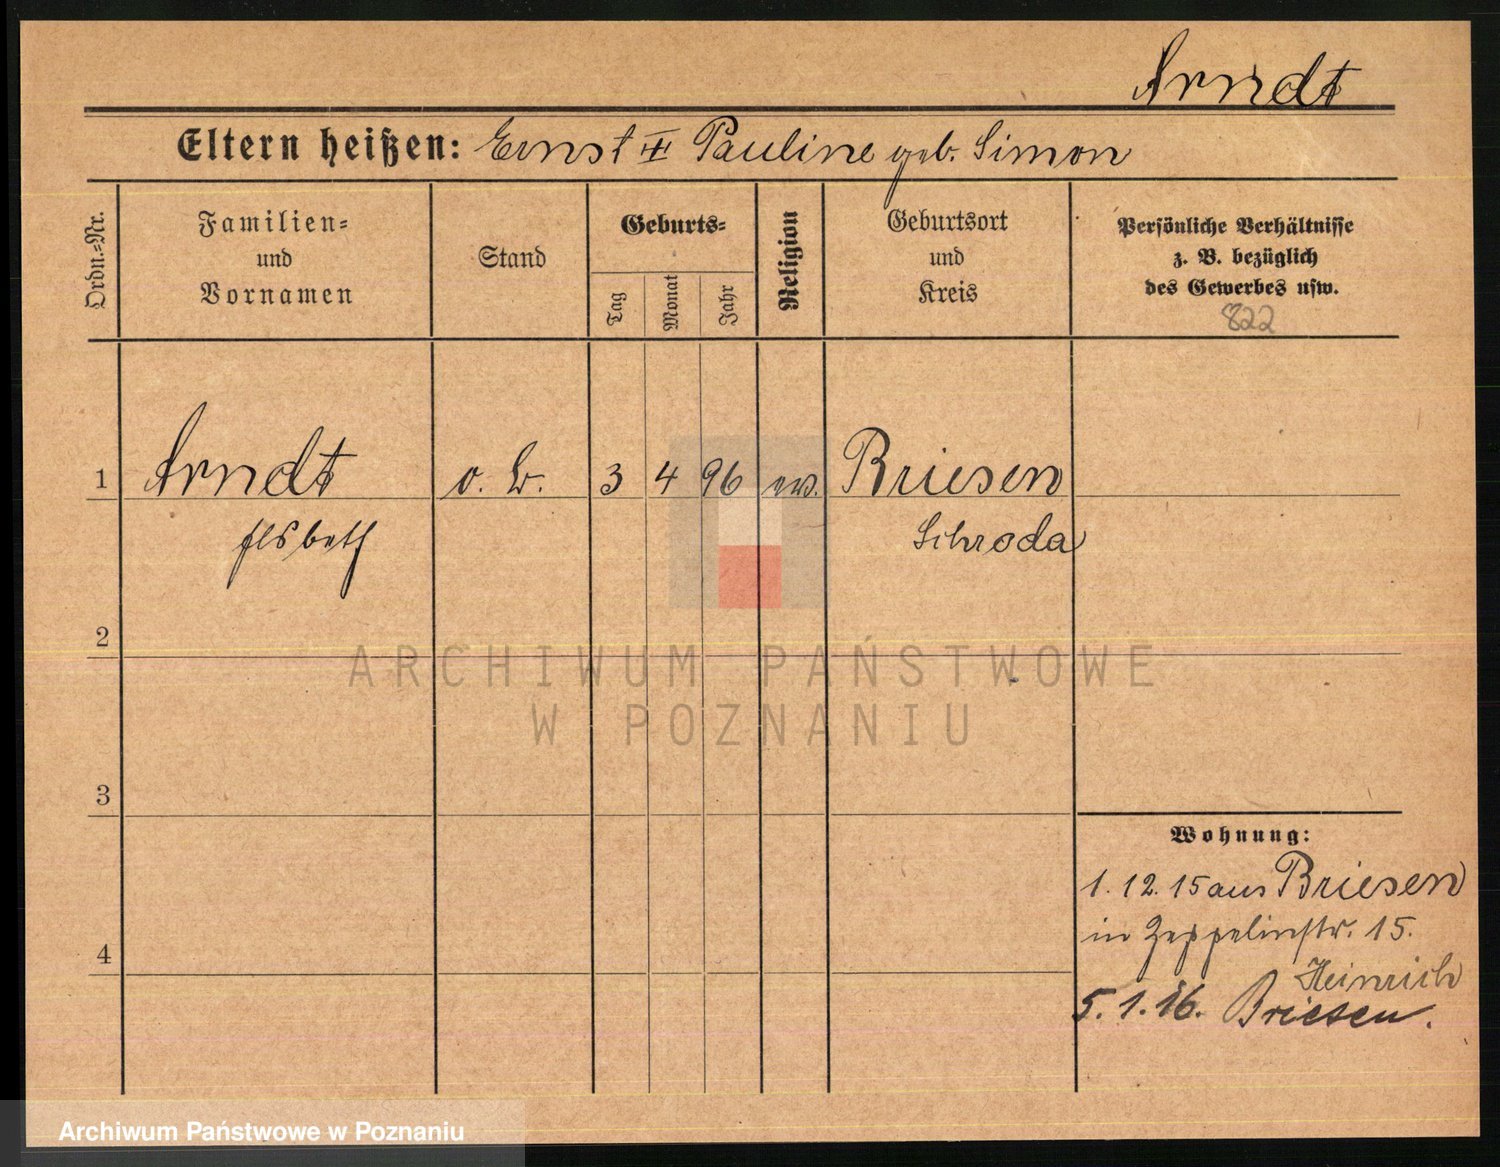 Arndt
Eltern heißen: Ernst Pauline geb. Simon
Ordn.-Nr.
Familien-
und
Vornamen
Stand
Geburts-
Tag
Monat
Jahr
Religion
Geburtsort
und
Kreis
Persönliche Verhältnisse
z. B. bezüglich
des Gewerbes usw.
822
1 Arndt o. 3 4 96 ev. Briesen
Elsbeth Schroda
2
ARCHIWUM PAŃSTWOWE
W POZNANIU
3
Wohnung:
1. 12. 15 aus Briesen
in Zeppelinstr. 15.
4
Heinrich
5. 1. 16. Briesen.
Archiwum Państwowe w Poznaniu